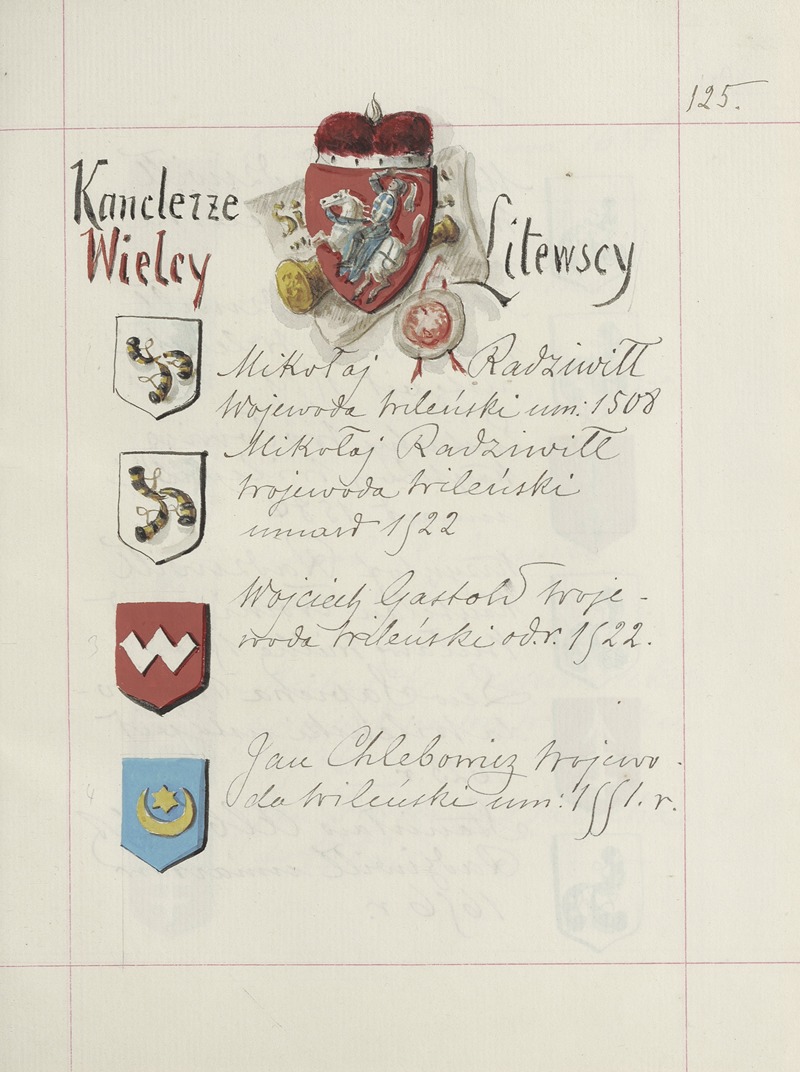 125.
Kanclerze
Wielcy
Litewscy
Mikołaj Radziwiłł
Wojewoda wileński um: 1508
Mikołaj Radziwiłł
wojewoda wileński
umarł 1522
Wojciech Gastold woje-
woda wileński od r. 1522.
Jan Chlebowicz wojewo-
da wileński um: 1551. r.
3
4